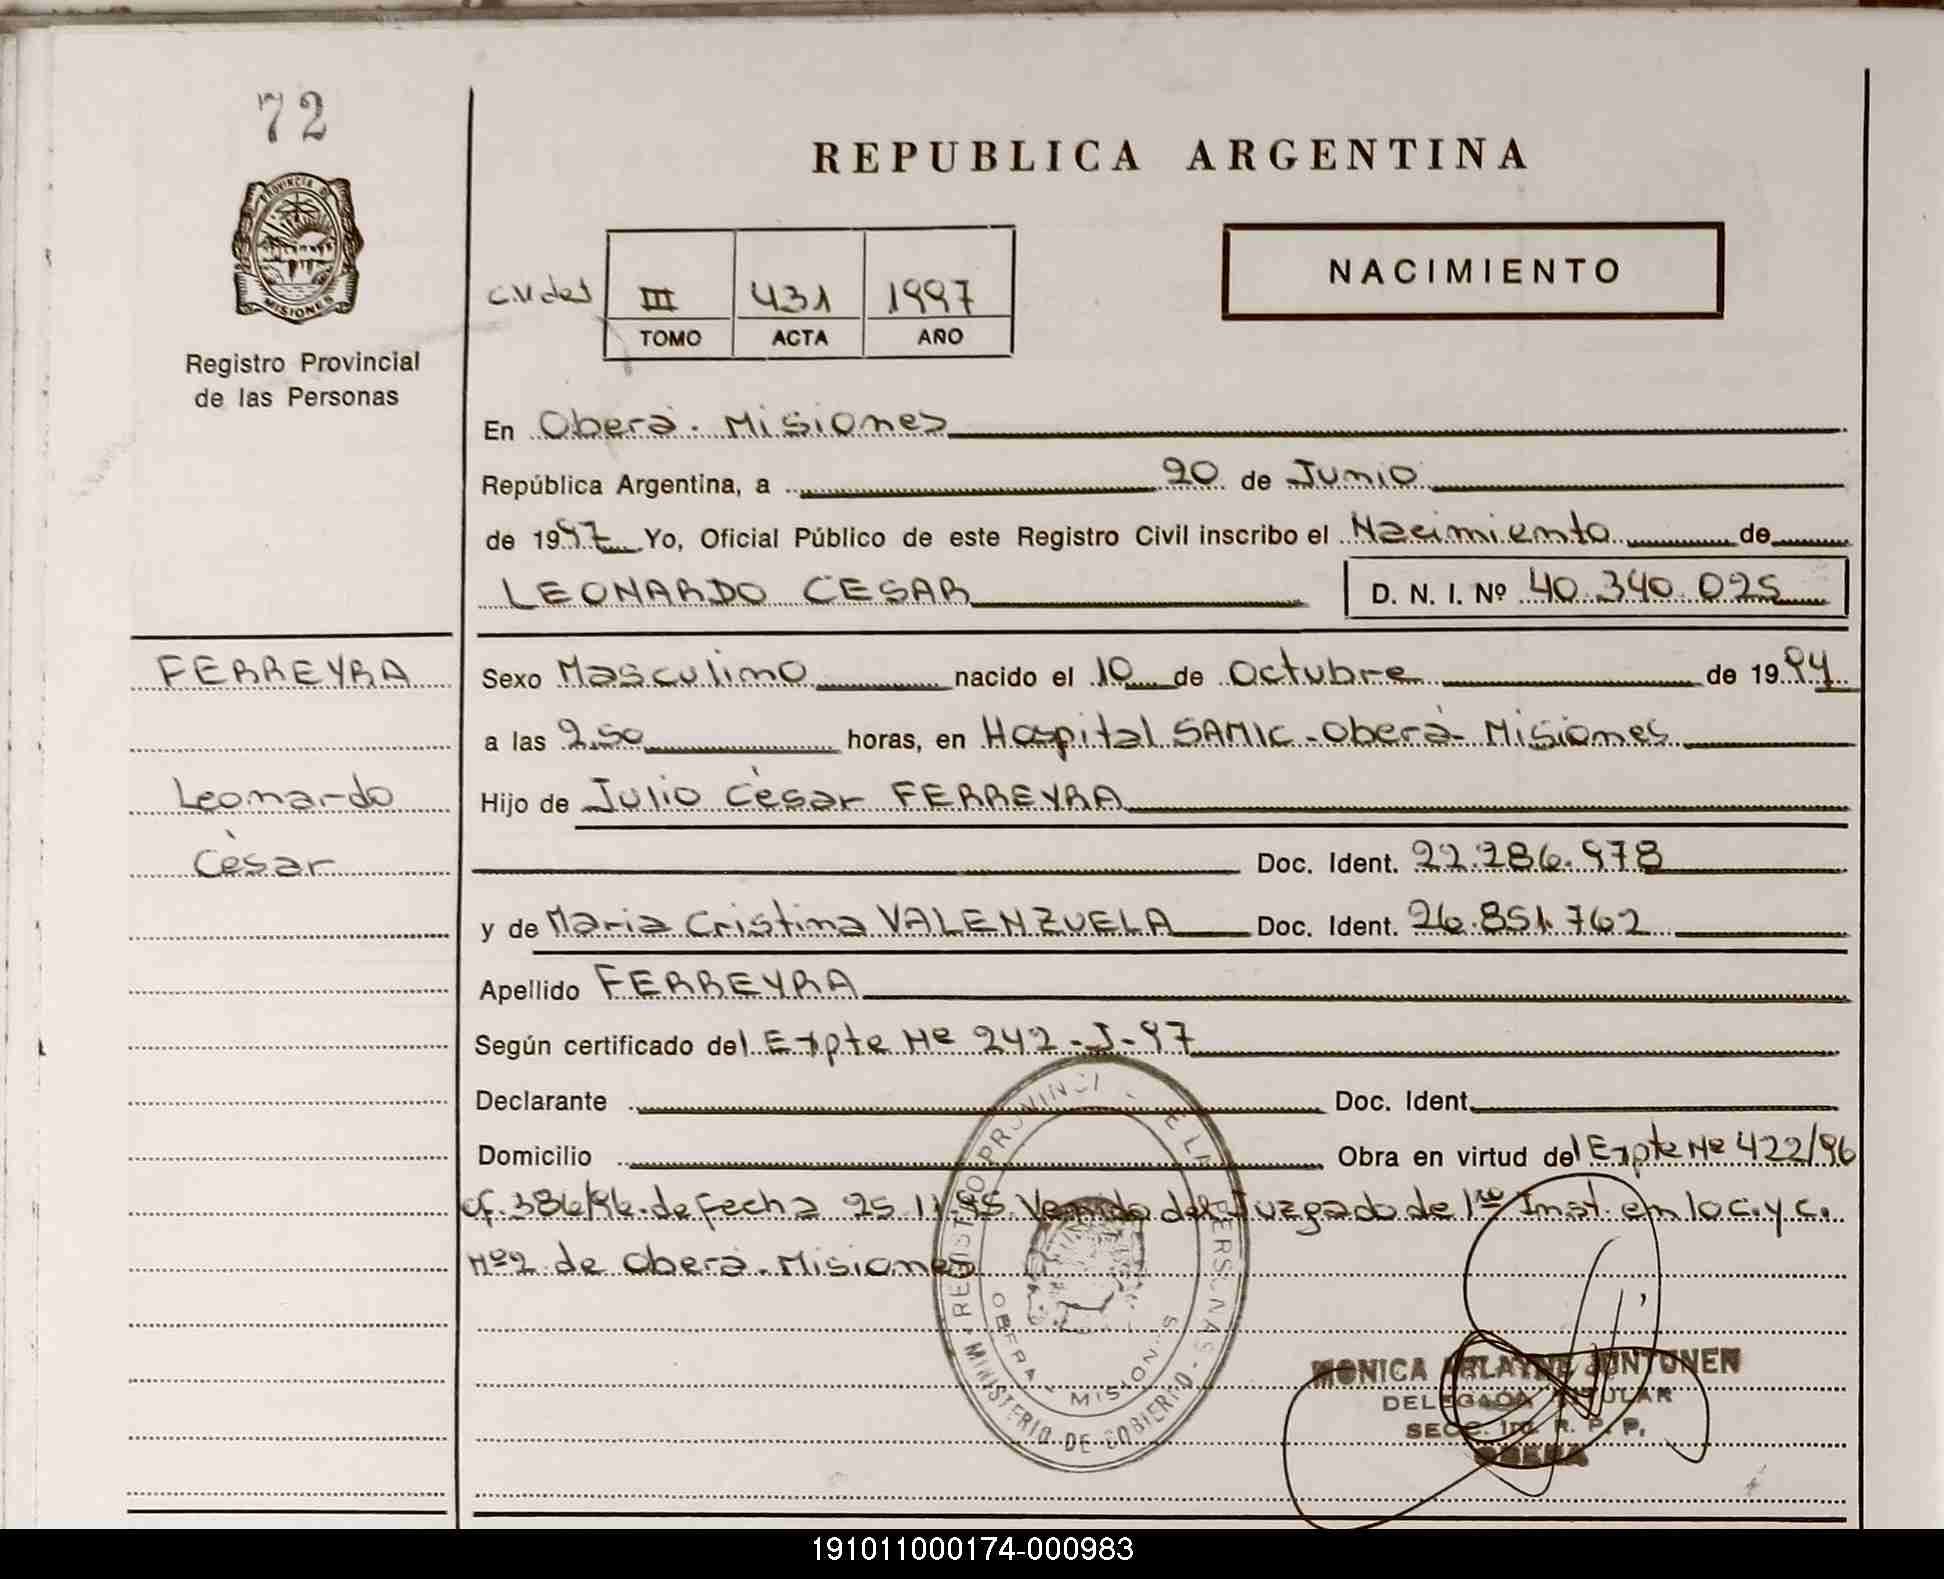 72
REPUBLICA ARGENTINA
PROVINCIA D
MISIONES
Registro Provincial
de las Personas
III 431 1997
TOMO ACTA AÑO
NACIMIENTO
En Oberá. Misiones
República Argentina, a 20 de Junio
de 1997 Yo, Oficial Público de este Registro Civil inscribo el Nacimiento de
LEONARDO CESAR D. N. I. Nº 40.340.025
FERREYRA
Leonardo
César
Sexo Masculino nacido el 10 de Octubre de 1994
a las 2,50 horas, en Hospital SAMIC - Oberá - Misiones
Hijo de Julio César FERREYRA
Doc. Ident. 22.286.978
y de Maria Cristina VALENZUELA Doc. Ident. 26.851.762
Apellido FERREYRA
Según certificado del Expte Nº 242-J-97
Declarante Doc. Ident.
Domicilio Obra en virtud del Expte Nº 422/96
of. 386/96. de fecha 25 11 Venido del Juzgado de 1ra Inst. en lo C. y C.
Nº2 de Oberá. Misiones
MINISTERIO DE GOBIERNO
MISIONES
MONICA JUNTUNEN
DELEGADA TITULAR
R. P. P.
OBERA
191011000174-000983